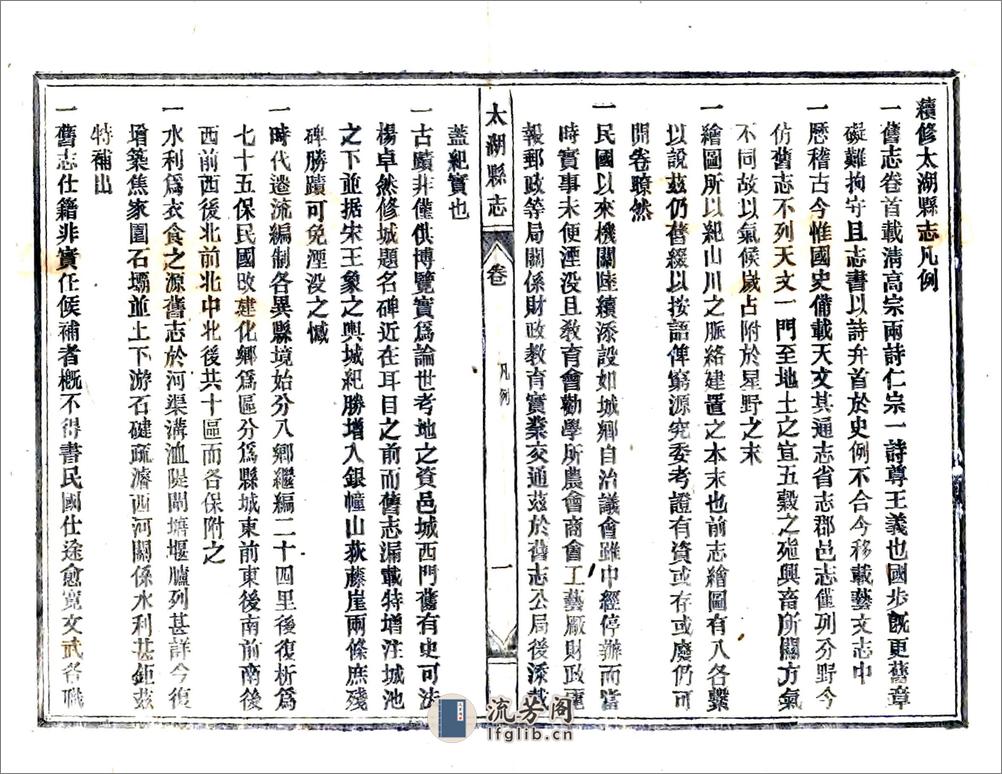 續修太湖縣志凡例
一舊志卷首載淸高宗兩詩仁宗一詩尊王義也國步旣更舊章
礙難拘守且志書以詩弁首於史例不合今移載藝文志中
一歷稽古今惟國史備載天文其通志省志郡邑志僅列分野今
仿舊志不列天文一門至地土之宜五穀之殖興畜所關方氣
不同故以氣候歲占附於星野之末
一繪圖所以紀山川之脈絡建置之本末也前志繪圖有八各繫
以說茲仍舊綴以按語俾窮源究委考證有資或存或廢仍可
開卷瞭然
一民國以來機關陸續添設如城鄉自治議會雖中經停辦而當
時實事未便湮没且敎育會勸學所農會商會工藝廠財政電
報郵政等局關係財政敎育實業交通茲於舊志公局後添載
太湖縣志
卷
凡例
一
蓋紀實也
一古蹟非僅供博覽實爲論世考地之資邑城西門舊有史可法
楊卓然修城題名碑近在耳目之前而舊志漏載特增注城池
之下並据宋王象之輿城紀勝增入銀幢山荻藤崖兩條庶殘
碑勝蹟可免湮没之憾
一時代遞流編制各異縣境始分八鄉繼編二十四里後復析爲
七十五保民國改建化鄉爲區分爲縣城東前東後南前南後
西前西後北前北中北後共十區而各保附之
一水利爲衣食之源舊志於河渠溝洫隄閘塘堰臚列甚詳今復
增築焦家圍石壩並上下游石磋疏濬西河關係水利甚鉅茲
特補出
一舊志仕籍非實任候補者槪不得書民國仕途愈寬文武各職
流芳阁
lfglib.cn